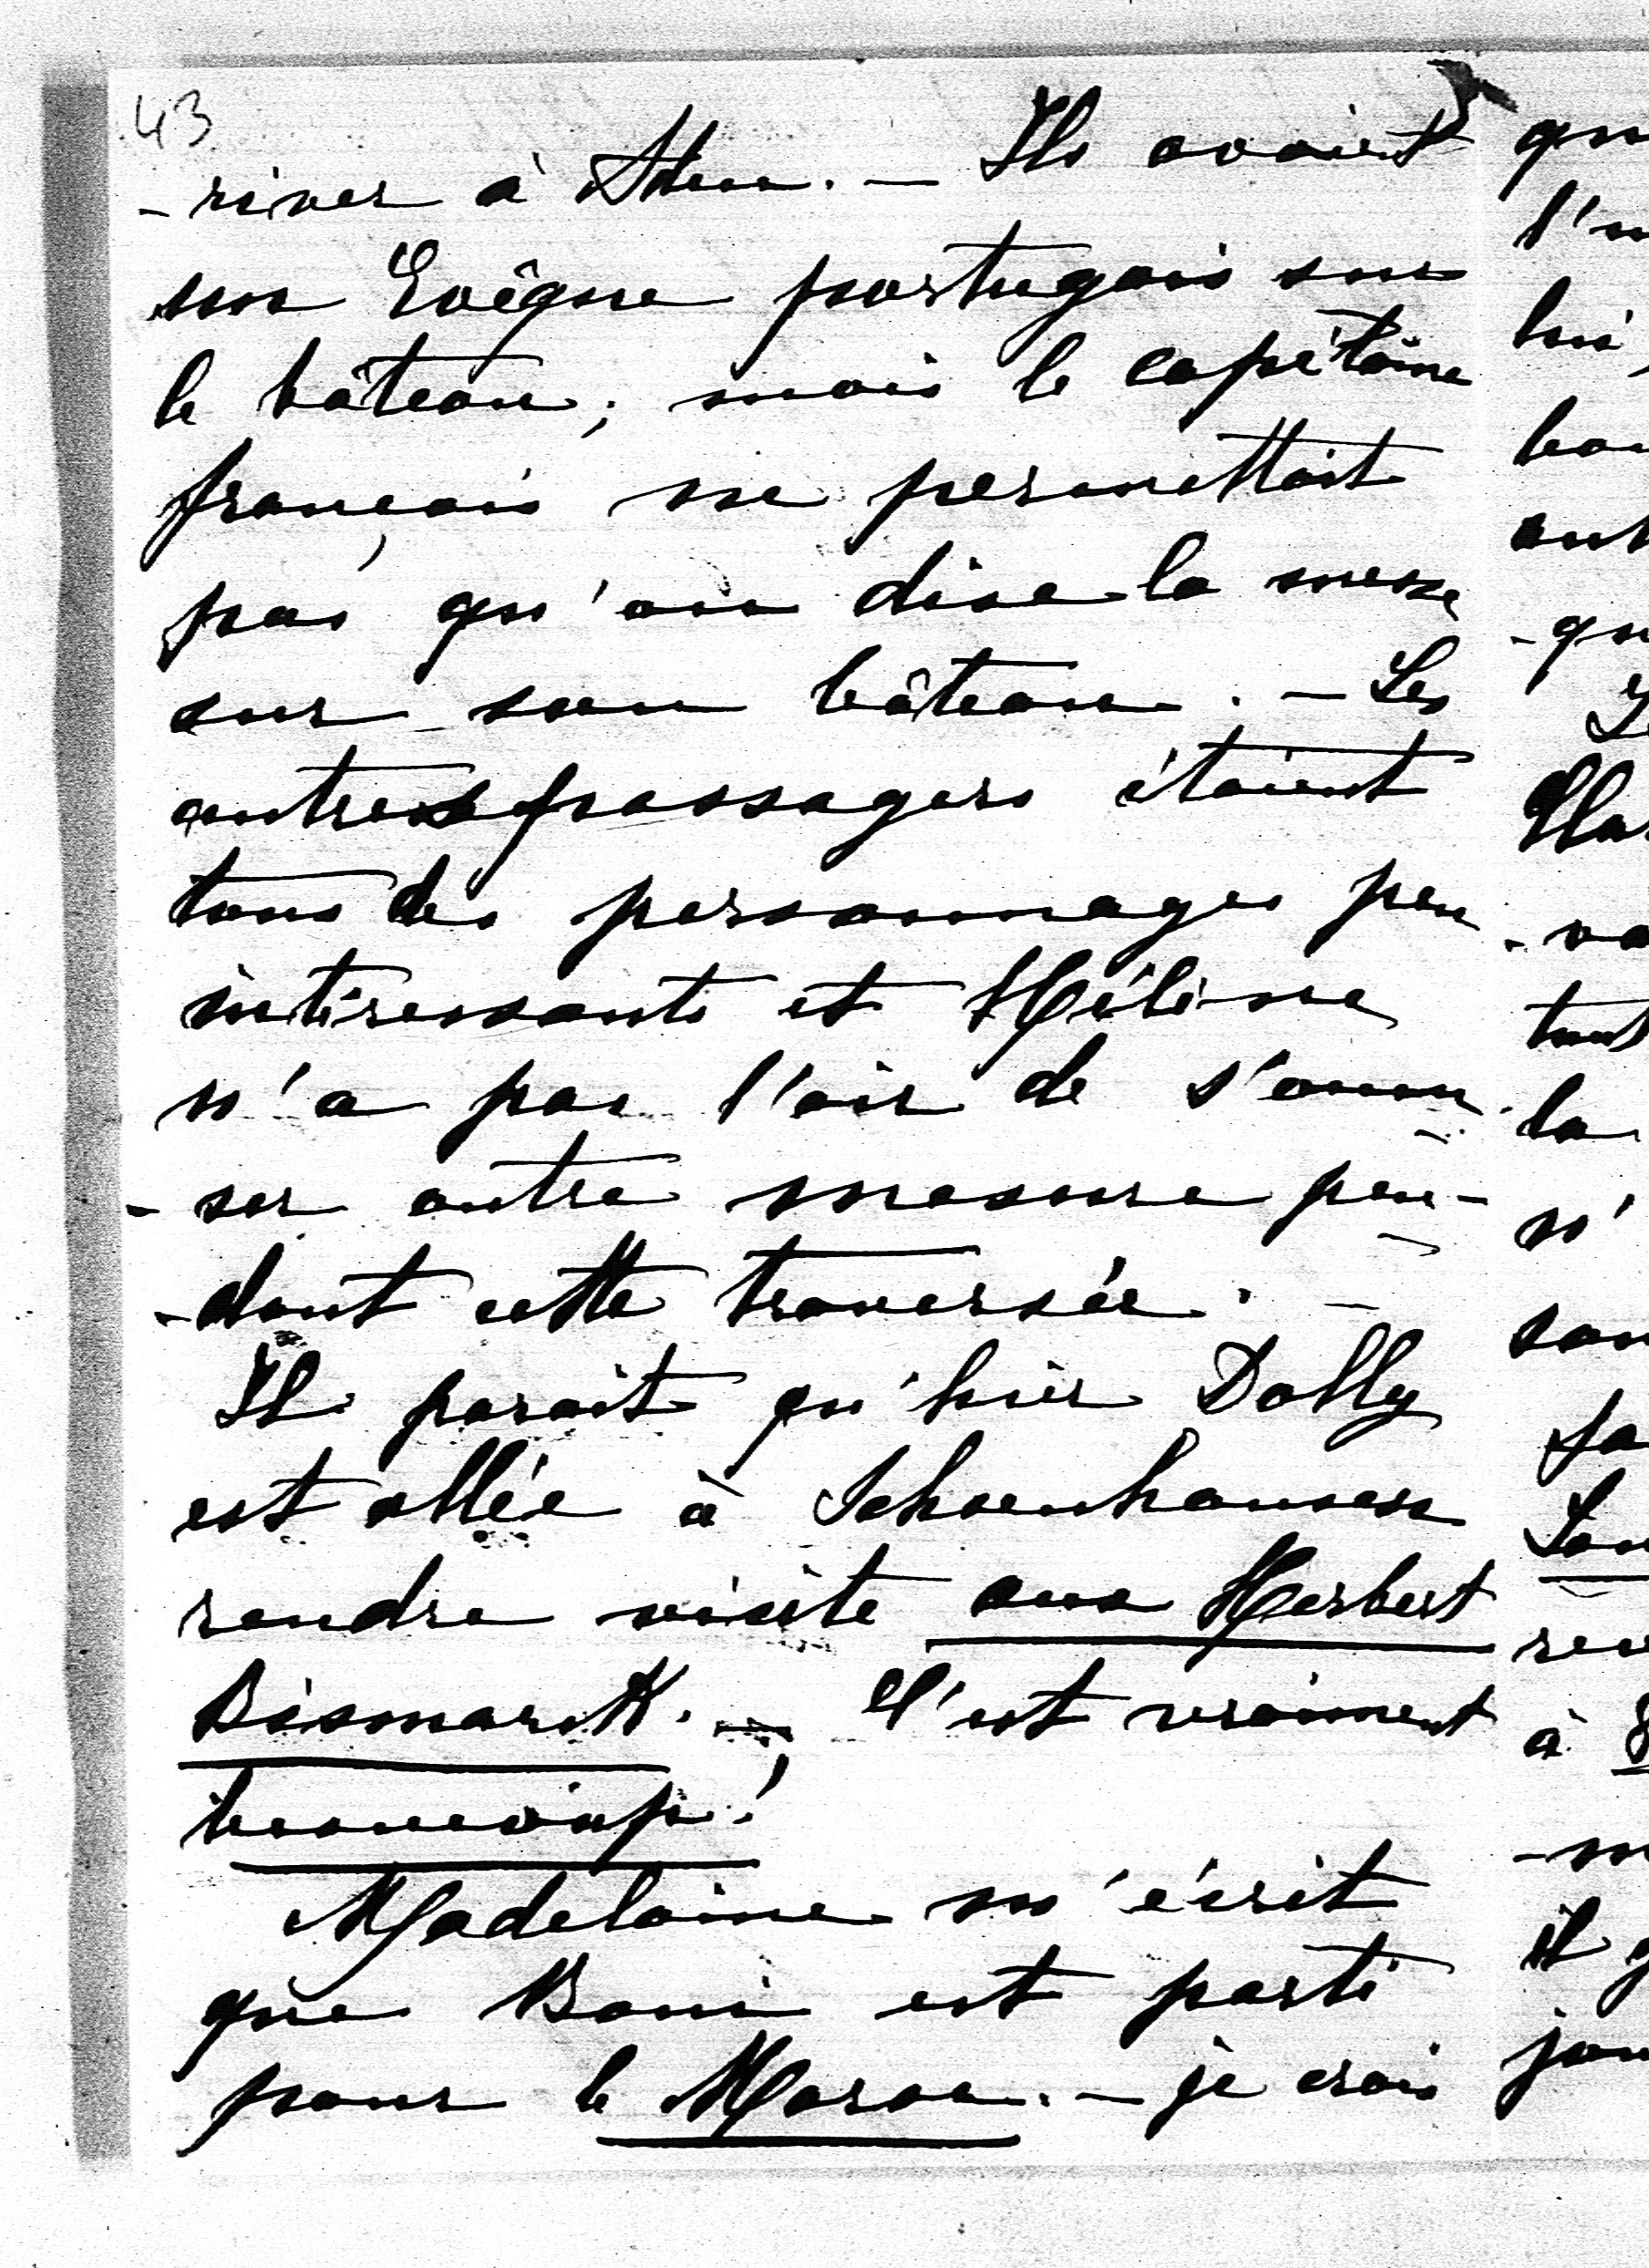 43
-river à Aden. — Ils avaient
un Evêque portugais sur
le bâteau; mais le capitaine
français ne permettait
pas qu'on dise la messe
sur son bâteau. — Les
autres passagers étaient
tous des personnages peu
intéressants et Hélène
n'a pas l'air de s'amu-
-ser outre mesure pen-
-dant cette traversée. —
Il parait qu'hier Dolly
est allée à Schoenhausen
rendre visite aux Herbert
Bismarck. — C'est vraiment
beaucoup!
Madelaine m'écrit
que Boni est parti
pour le Maroc. — je crois
qu
l'u
lui
bou
ant
-qu
Ha
-va
tout
la
n'
son
fa
à
-m
il
jou